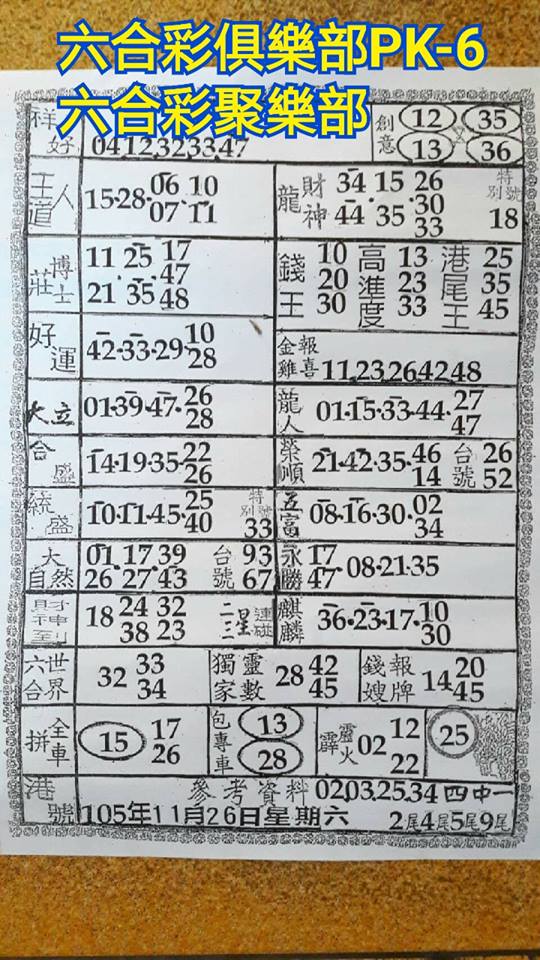 六合彩俱樂部PK-6
六合彩聚樂部
祥好 04.12.32.33.47 創意 12 35 13 36
王道人 15.28. 06 10 07 11
龍 財神 34 15 26 44 35 30 33 特別號 18
莊博士 11 25 17 47 21 35 48
錢王 10 20 30 高準度 13 23 33 港尾王 25 35 45
好運 42.33.29. 10 28
金雞報喜 11.23.26.42.48
大立 01.39.47. 26 28
龍人 01.15.33.44. 27 47
合盛 14.19.35. 22 26
榮順 21.42.35. 46 14 台號 26 52
統盛 10.11.45. 25 40 特別號 33
五富 08.16.30. 02 34
大自然 01 17 39 26 27 43 台號 93 67
永勝 17 47 08.21.35
財神到 18 24 32 38 23 二三星連碰
麒麟 36.23.17. 10 30
六合世界 32 33 34
獨家靈數 28 42 45
錢嫂報牌 14 20 45
拼全車 15 17 26
包專車 13 28
霹靂火 02 12 22
25
港號 參考資料 02.03.25.34 四中一
105年11月26日星期六 2尾4尾5尾9尾